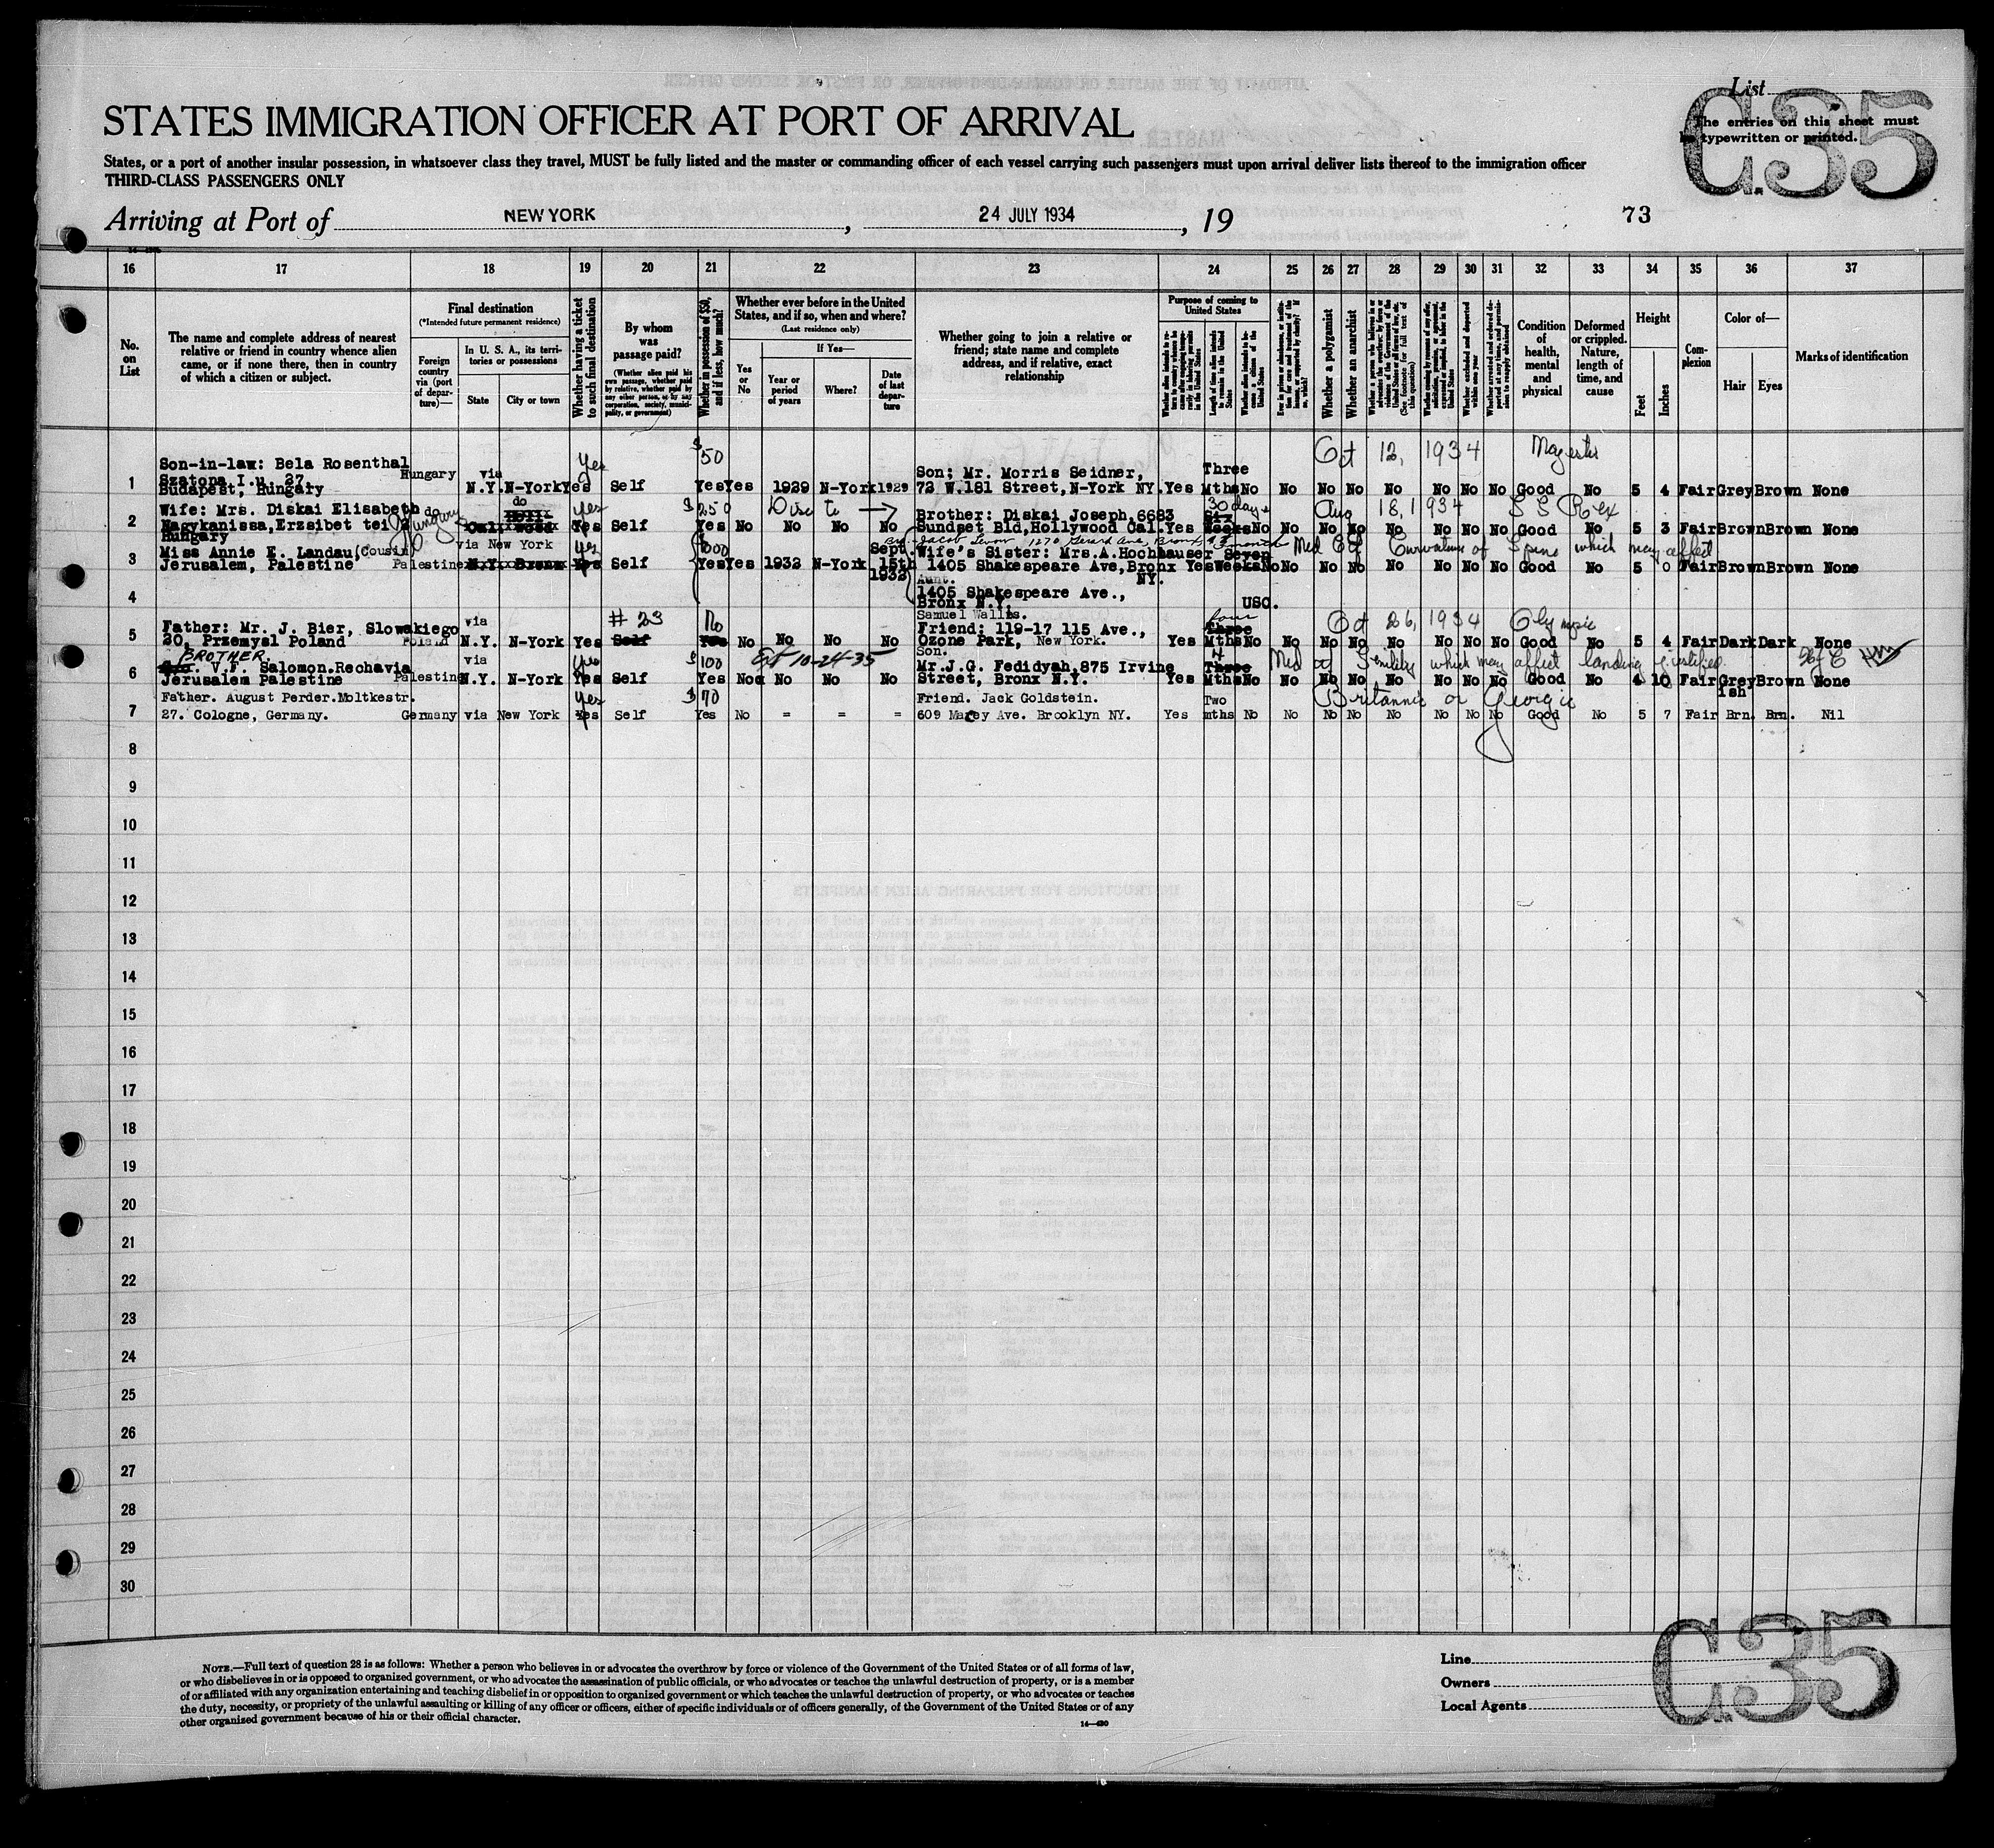 List
C35
STATES IMMIGRATION OFFICER AT PORT OF ARRIVAL
The entries on this sheet must
be typewritten or printed.
States, or a port of another insular possession, in whatsoever class they travel, MUST be fully listed and the master or commanding officer of each vessel carrying such passengers must upon arrival deliver lists thereof to the immigration officer
THIRD-CLASS PASSENGERS ONLY
Arriving at Port of NEW YORK, 24 JULY 1934, 19 73
16 17 18 19 20 21 22 23 24 25 26 27 28 29 30 31 32 33 34 35 36 37
No. on List
The name and complete address of nearest relative or friend in country whence alien came, or if none there, then in country of which a citizen or subject.
Final destination
(*Intended future permanent residence)
Foreign country via (port of departure)—
In U. S. A., its territories or possessions
State
City or town
Whether having a ticket to such final destination
By whom was passage paid?
(Whether alien paid his own passage, whether paid by relative, whether paid by any other person, or by any corporation, society, municipality, or government)
Whether in possession of $50, and if less, how much?
Whether ever before in the United States, and if so, when and where?
(Last residence only)
Yes or No
If Yes—
Year or period of years
Where?
Date of last departure
Whether going to join a relative or friend; state name and complete address, and if relative, exact relationship
Purpose of coming to United States
Length of time alien intends to remain in the United States
Whether alien intends to become a citizen of the United States
Whether a polygamist
Whether an anarchist
Condition of health, mental and physical
Deformed or crippled. Nature, length of time, and cause
Height
Feet
Inches
Complexion
Color of—
Hair
Eyes
Marks of identification
Son-in-law: Bela Rosenthal Hungary via yes $50 Three Oct 12, 1934 Majestic
1 Szatona I.u. 27. Budapest, Hungary N.Y. N-York Yes Self Yes Yes 1929 N-York 1929 Son; Mr. Morris Seidner, 72 W.181 Street, N-York NY. Yes Mths No No No No No No No No Good No 5 4 Fair Grey Brown None
Wife: Mrs. Diskai Elisabeth do Hungary do yes $250 Disc to → 30 days Aug 18, 1934 S S Rex
2 Nagykanissa, Erzsibet tei Hungary Yes Self Yes No No No No Brother: Diskai Joseph 6683 Sundset Bld, Hollywood Cal. Yes Weeks No No No No No No No No Good No 5 3 Fair Brown Brown None
Miss Annie E. Landau (Cousin) via New York yes 1000 Sept Bronx Med Cf Curvature of Spine which may affect
3 Jerusalem, Palestine Palestine N.Y. Bronx Yes Self Yes Yes 1932 N-York 15th 1932 Wife's Sister: Mrs. A. Hochhauser 1405 Shakespeare Ave, Bronx NY. Yes Seven Weeks No No No No No No No No Good No 5 0 Fair Brown Brown None
4 Aunt. 1405 Shakespeare Ave., Bronx N.Y. USC.
Samuel Wallis. via # 23 No four Oct 26, 1934 Olympic
5 Father: Mr. J. Bier, Slowakiego 20, Przemysl Poland Poland N.Y. N-York Yes Self Yes No No No No Friend: 119-17 115 Ave., Ozone Park, New York. Yes Three Mths No No No No No No No No Good No 5 4 Fair Dark Dark None
BROTHER. via yes $100 Ext 10-24-35 Son. 4 Med Senility which may affect landing
6 V.F. Salomon. Rechavia Jerusalem Palestine Palestine N.Y. N-York Yes Self Yes No No No No Mr. J.G. Fedidyah, 875 Irvine Street, Bronx N.Y. Yes Three Mths No No No No No No No No Good No 4 10 Fair Greyish Brown None
Father. August Perder. Moltkestr. yes $70 Friend. Jack Goldstein. Two Britannic or Georgic
7 27. Cologne, Germany. Germany via New York Yes Self Yes No = = = 609 Marcy Ave. Brooklyn NY. Yes mths No No No No No No No No Good No 5 7 Fair Brn. Brn. Nil
8
9
10
11
12
13
14
15
16
17
18
19
20
21
22
23
24
25
26
27
28
29
30
NOTE.—Full text of question 28 is as follows: Whether a person who believes in or advocates the overthrow by force or violence of the Government of the United States or of all forms of law,
or who disbelieves in or is opposed to organized government, or who advocates the assassination of public officials, or who advocates or teaches the unlawful destruction of property, or is a member
of or affiliated with any organization entertaining and teaching disbelief in or opposition to organized government or which teaches the unlawful destruction of property, or who advocates or teaches
the duty, necessity, or propriety of the unlawful assaulting or killing of any officer or officers, either of specific individuals or of officers generally, of the Government of the United States or of any
other organized government because of his or their official character.
14—430
Line
Owners
Local Agents
C35